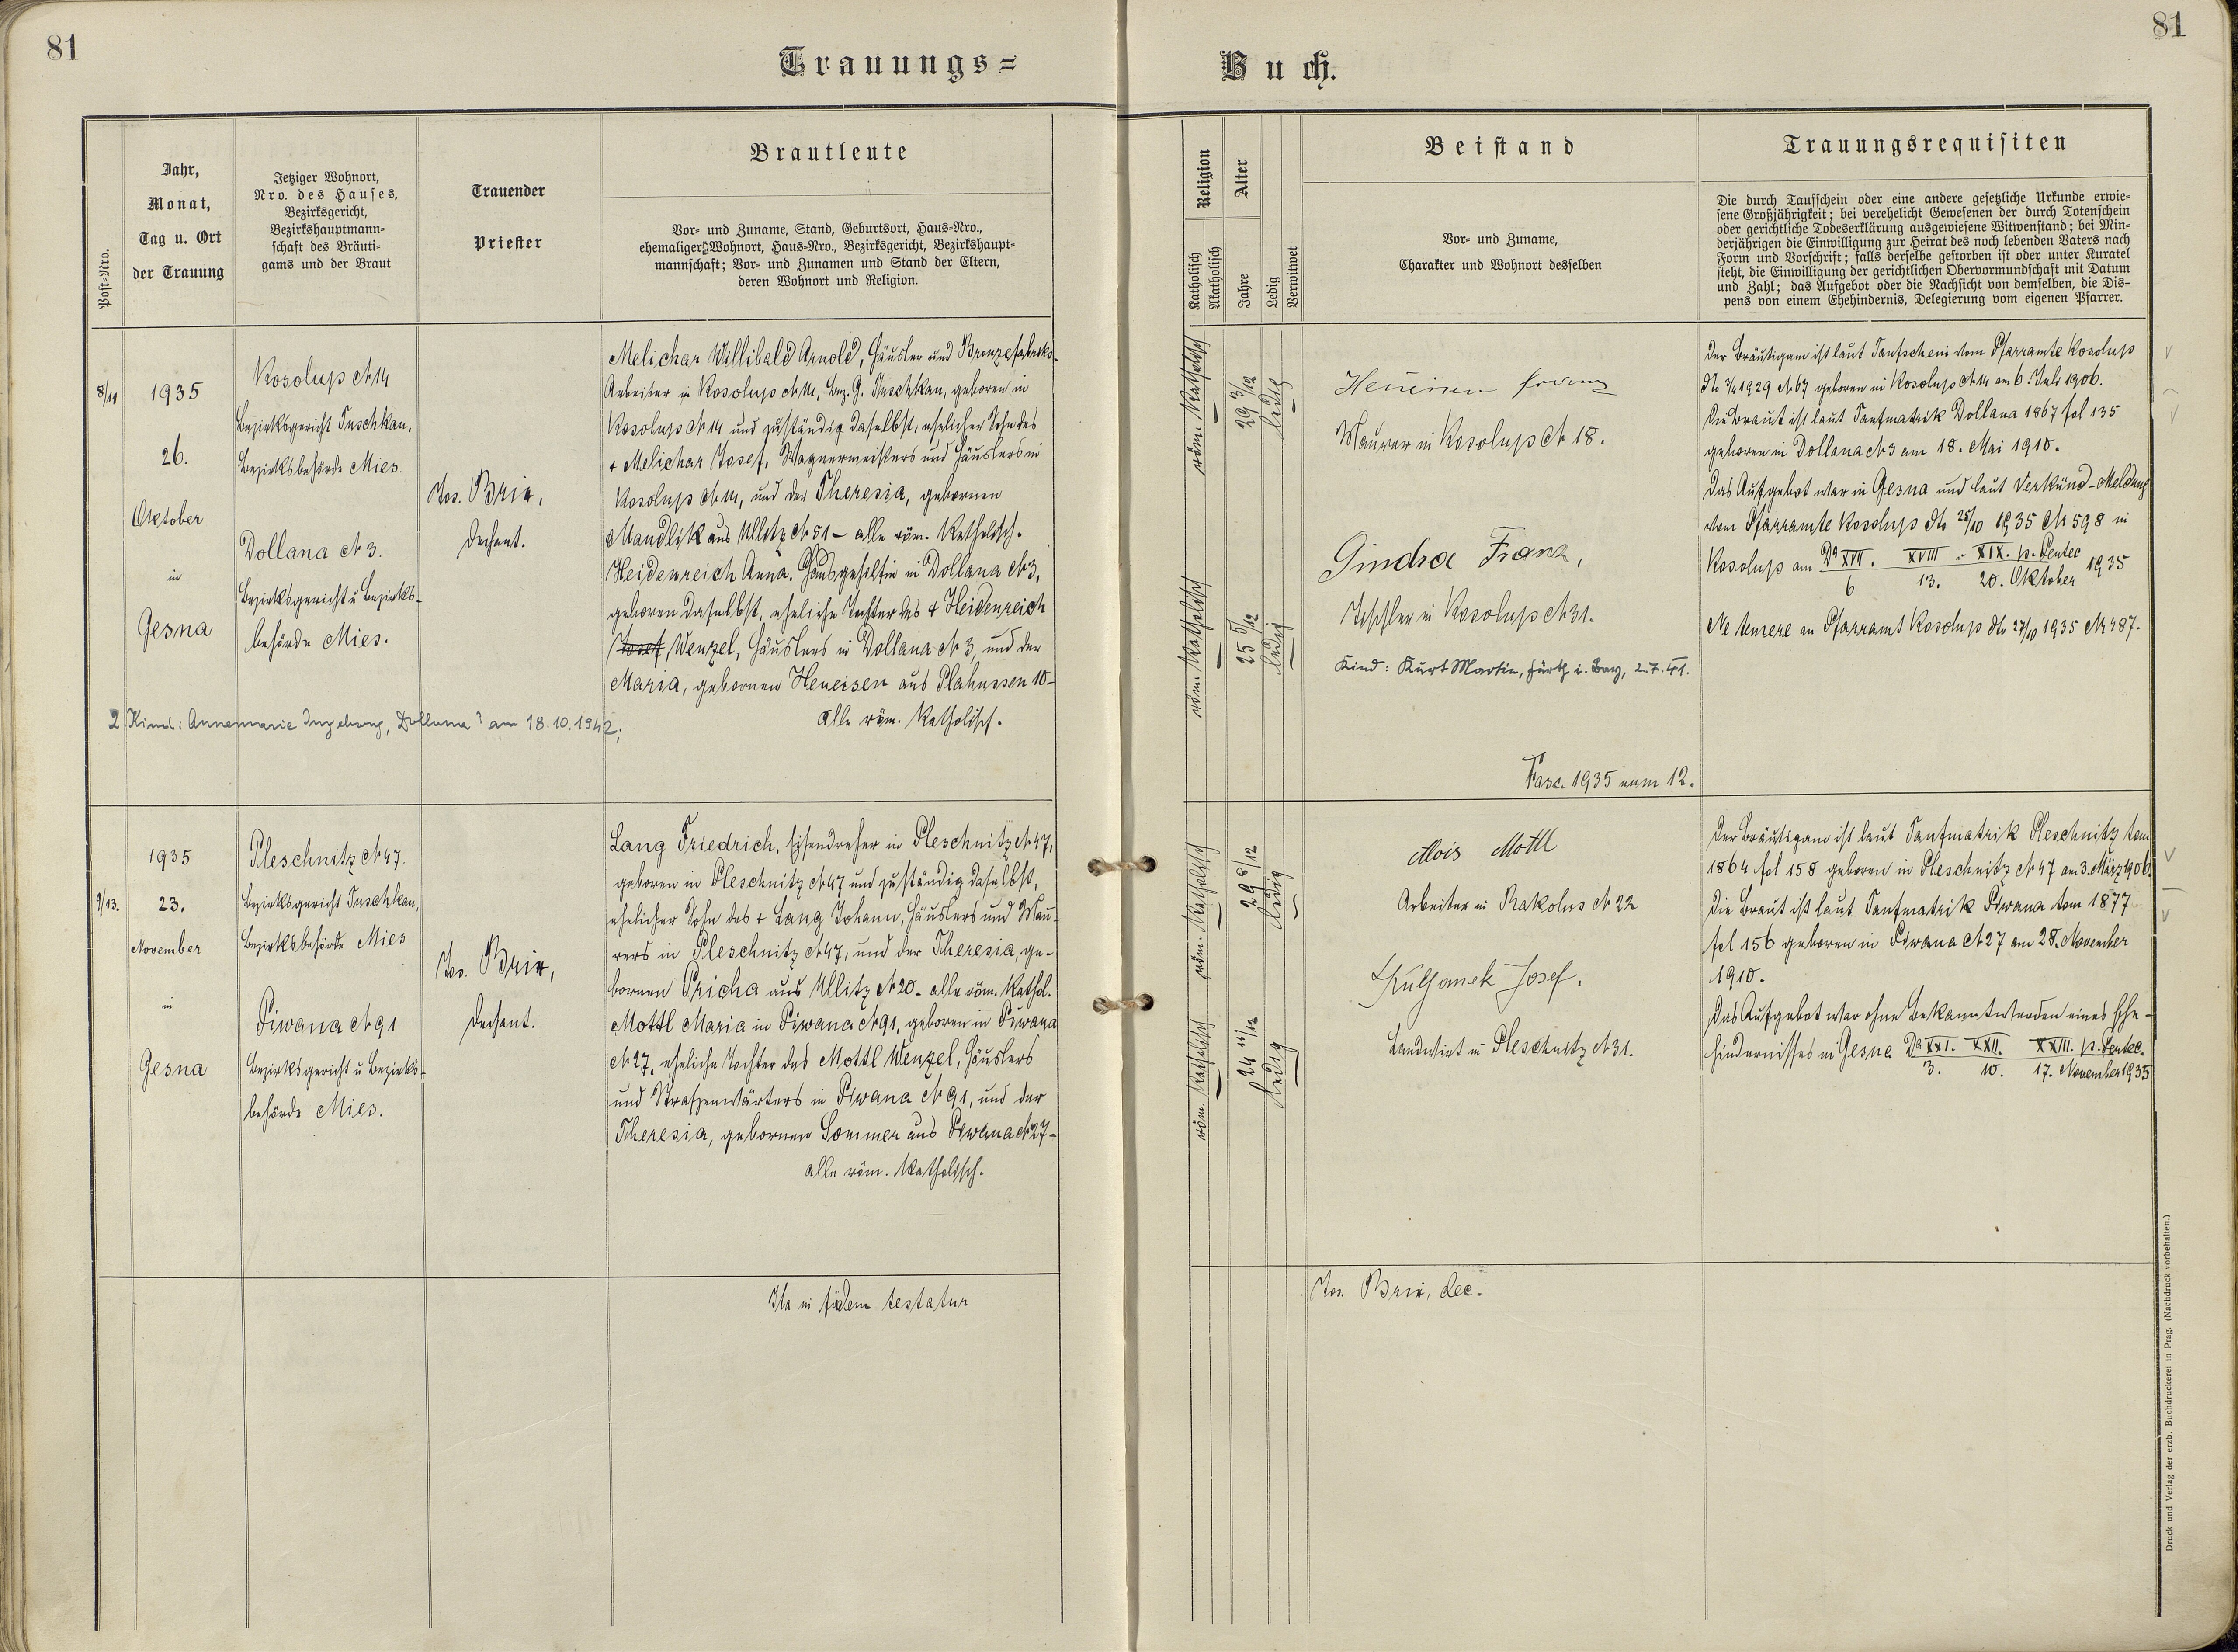 81
Trauungs=
Buch.
81
Post=Nro.
Jahr,
Monat,
Tag u. Ort
der Trauung
Jetziger Wohnort,
Nro. des Hauses,
Bezirksgericht,
Bezirkshauptmann-
schaft des Bräuti-
gams und der Braut
Trauender
Priester
Brautleute
Vor- und Zuname, Stand, Geburtsort, Haus-Nro.,
ehemaliger Wohnort, Haus-Nro., Bezirksgericht, Bezirkshaupt-
mannschaft; Vor- und Zunamen und Stand der Eltern,
deren Wohnort und Religion.
Religion
Katholisch
Akatholisch
Alter
Jahre
Ledig
Verwitwet
Beistand
Vor- und Zuname,
Charakter und Wohnort desselben
Trauungsrequisiten
Die durch Taufschein oder eine andere gesetzliche Urkunde erwie-
sene Großjährigkeit; bei verehelicht Gewesenen der durch Totenschein
oder gerichtliche Todeserklärung ausgewiesene Witwenstand; bei Min-
derjährigen die Einwilligung zur Heirat des noch lebenden Vaters nach
Form und Vorschrift; falls derselbe gestorben ist oder unter Kuratel
steht, die Einwilligung der gerichtlichen Obervormundschaft mit Datum
und Zahl; das Aufgebot oder die Nachsicht von demselben, die Dis-
pens von einem Ehehindernis, Delegierung vom eigenen Pfarrer.
1935
26.
Oktober
in
Gesna
Kosolup № 14
Bezirksgericht Tuschkau,
Bezirksbehörde Mies.
Dollana № 3.
Bezirksgericht u Bezirks-
behörde Mies.
Jos. Brix,
Dechant.
Melichar Willibald Arnold, Häusler und Bronzefabriks-
Arbeiter in Kosolup № 14, Bez. G. Tuschkau, geboren in
Kosolup № 14 und zuständig daselbst, ehelicher Sohn des
+ Melichar Josef, Wagnermeisters und Häuslers in
Kosolup № 14, und der Theresia, gebornen
Mandlik aus Ullitz № 51 – alle röm. Katholisch.
Heidenreich Anna, Hausgehilfin in Dollana № 3,
geboren daselbst, eheliche Tochter des + Heidenreich
Josef, Wenzel, Häuslers in Dollana № 3, und der
Maria, gebornen Heneisen aus Plahussen 10 –
alle röm. Katholisch.
2. Kind: Annemarie Ingeborg, Dollana 3 am 18.10.1942;
röm. Katholisch
29 3/12
ledig
röm. Katholisch
25 5/12
ledig
Franz
Maurer in Kosolup № 18.
Gindra Franz,
Tischler in Kosolup № 31.
Kind: Kurt Martin, Fürth i. Bay, 2.7.41.
Fasc. 1935 num 12.
Der Bräutigam ist laut Taufschein vom Pfarramte Kosolup
1929 № 67 geboren in Kosolup № 14 am 6. Juli 1906.
Die Braut ist laut Taufmatrik Dollana 1867 fol 135
geboren in Dollana № 3 am 18. Mai 1910.
Das Aufgebot war in Gesna und laut Verkünd-Meldung
vom Pfarramte Kosolup dto 25/10 1935 № 598 in
Kosolup am Da XVII. XVIII. XIX. p. Pentec
6 13. 20. Oktober 1935
Ne temere an Pfarramt Kosolup dto 27/10 1935 № 487.
9/13.
1935
23.
November
in
Gesna
Pleschnitz № 47.
Bezirksgericht Tuschkau,
Bezirksbehörde Mies
Piwana № 91
Bezirksgericht u Bezirks-
behörde Mies.
Jos. Brix,
Dechant.
Lang Friedrich, Eisendreher in Pleschnitz № 47,
geboren in Pleschnitz № 47 und zuständig daselbst,
ehelicher Sohn des + Lang Johann, Häuslers und Mau-
rers in Pleschnitz № 47, und der Theresia, ge-
bornen Pricha aus Ullitz № 20 – alle röm. Kathol.
Mottl Maria in Piwana № 91, geboren in Piwana
№ 27, eheliche Tochter des Mottl Wenzel, Häuslers
und Strassenwärters in Piwana № 91, und der
Theresia, gebornen Sommer aus Piwana № 27 –
alle röm. Katholisch.
röm. Katholisch
29 8/12
ledig
röm. Katholisch
24 11/12
ledig
Alois Mottl
Arbeiter in Rakolus № 22
Kulhanek Josef.
Landwirt in Pleschnitz № 31.
Der Bräutigam ist laut Taufmatrik Pleschnitz tom
1864 fol 158 geboren in Pleschnitz № 47 am 3. März 1906.
Die Braut ist laut Taufmatrik Piwana tom 1877
fol 156 geboren in Piwana № 27 am 28. November
1910.
Das Aufgebot war ohne Bekanntwerden eines Ehe-
hindernisses in Gesna Da XXI. XXII. XXIII. p. Pentec.
3. 10. 17. November 1935
Ita in fidem testatur
Jos. Brix, dec.
Druck und Verlag der erzb. Buchdruckerei in Prag. (Nachdruck vorbehalten.)